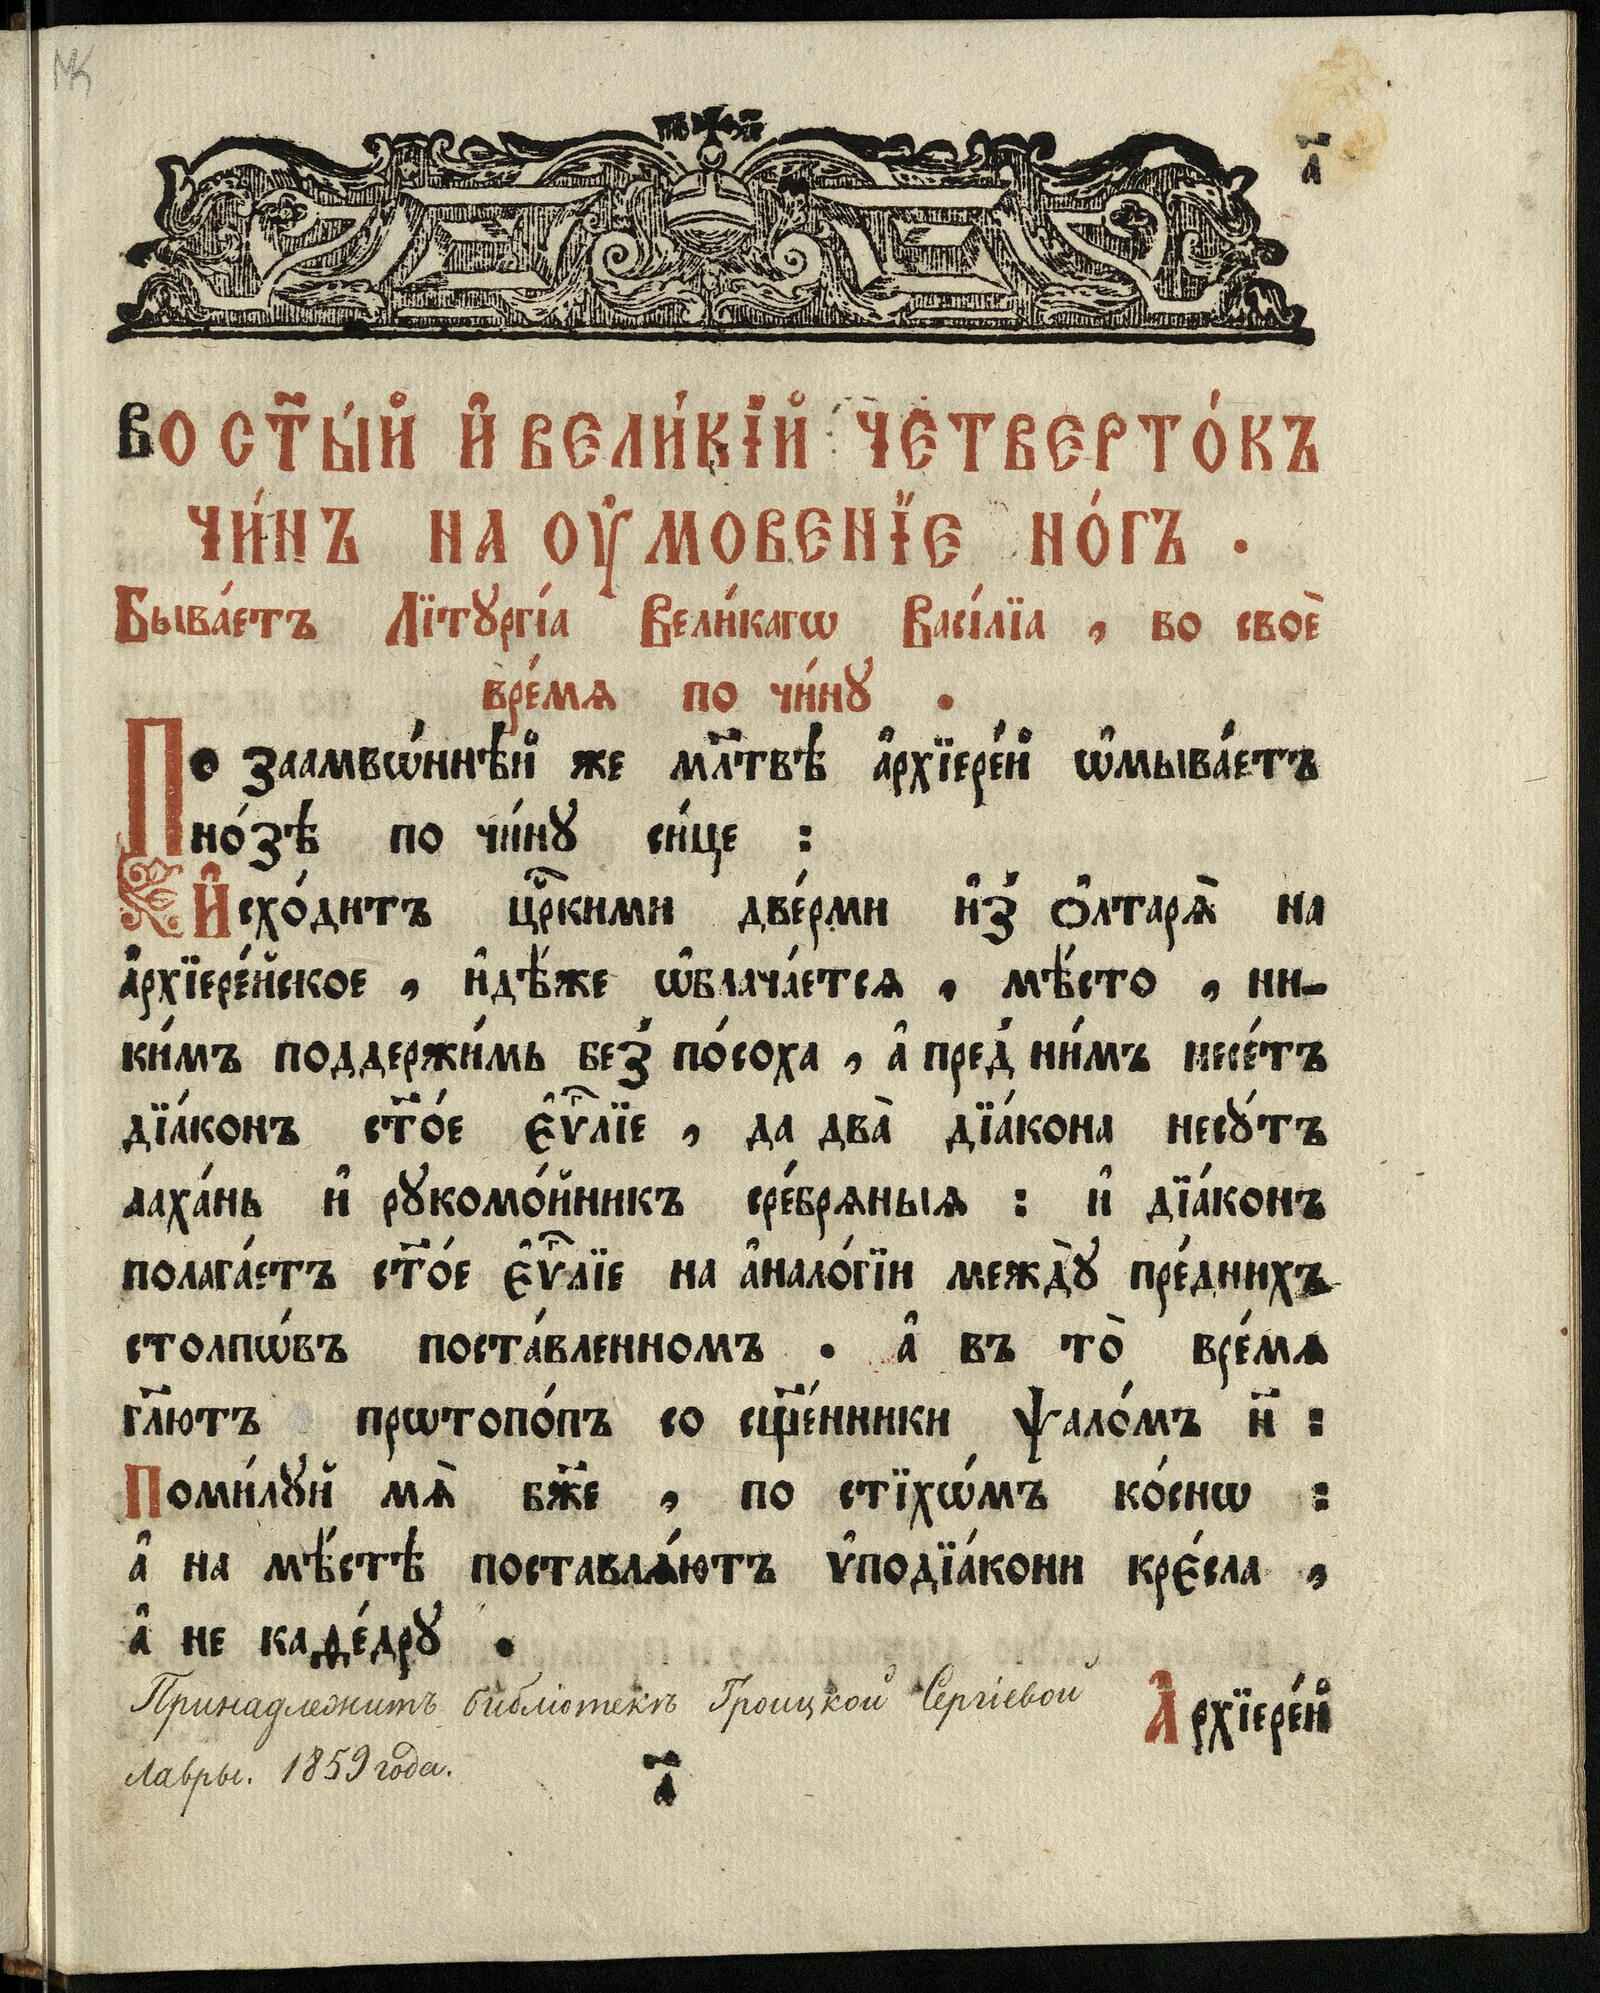 а҃
Во ст҃ы́й и҆ вели́кїй четверто́къ
чи́нъ на оу҆мове́нїе но́гъ .
Быва́етъ Лїтꙋргі́а Вели́кагѡ Васі́лїа , во своѐ
вре́мѧ по чи́нꙋ .
По заамвѡ́ннѣй же мл҃твѣ а҆рхїере́й ѡ҆мыва́етъ
но́зѣ по чи́нꙋ си́це :
И҆схо́дитъ цр҃кими две́рми и҆з̾ ѻ҆лтарѧ̀ на
а҆рхїере́йское , и҆дѣ́же ѡ҆блача́етсѧ , мѣ́сто , ни-
ки́мъ поддержи́мь без̾ по́соха , а҆ пред̾ ни́мъ несе́тъ
дїа́конъ ст҃о́е є҆ѵⷢ҇лїе , да два̀ дїа́кона несꙋ́тъ
лаха́нь и҆ рꙋкомо́йникъ сре́брѧныѧ : и҆ дїа́конъ
полага́етъ ст҃о́е є҆ѵⷢ҇лїе на а҆нало́гїи междꙋ̀ пре́днихъ
столпѡ́въ поста́вленномъ . а҆ въ то̀ вре́мѧ
гл҃ютъ прѡтопо́пъ со сщ҃е́нники ѱало́мъ н҃ :
Поми́лꙋй мѧ̀ бж҃е , по стїхѡ́мъ ко́снѡ :
а҆ на мѣ́стѣ поставлѧ́ютъ ѵ҆подїа́кони кре́сла ,
а҆ не каѳе́дрꙋ .
А҆рхїере́й
Принадлежитъ библіотекѣ Троицкой Сергіевой
Лавры. 1859 года.
а҃